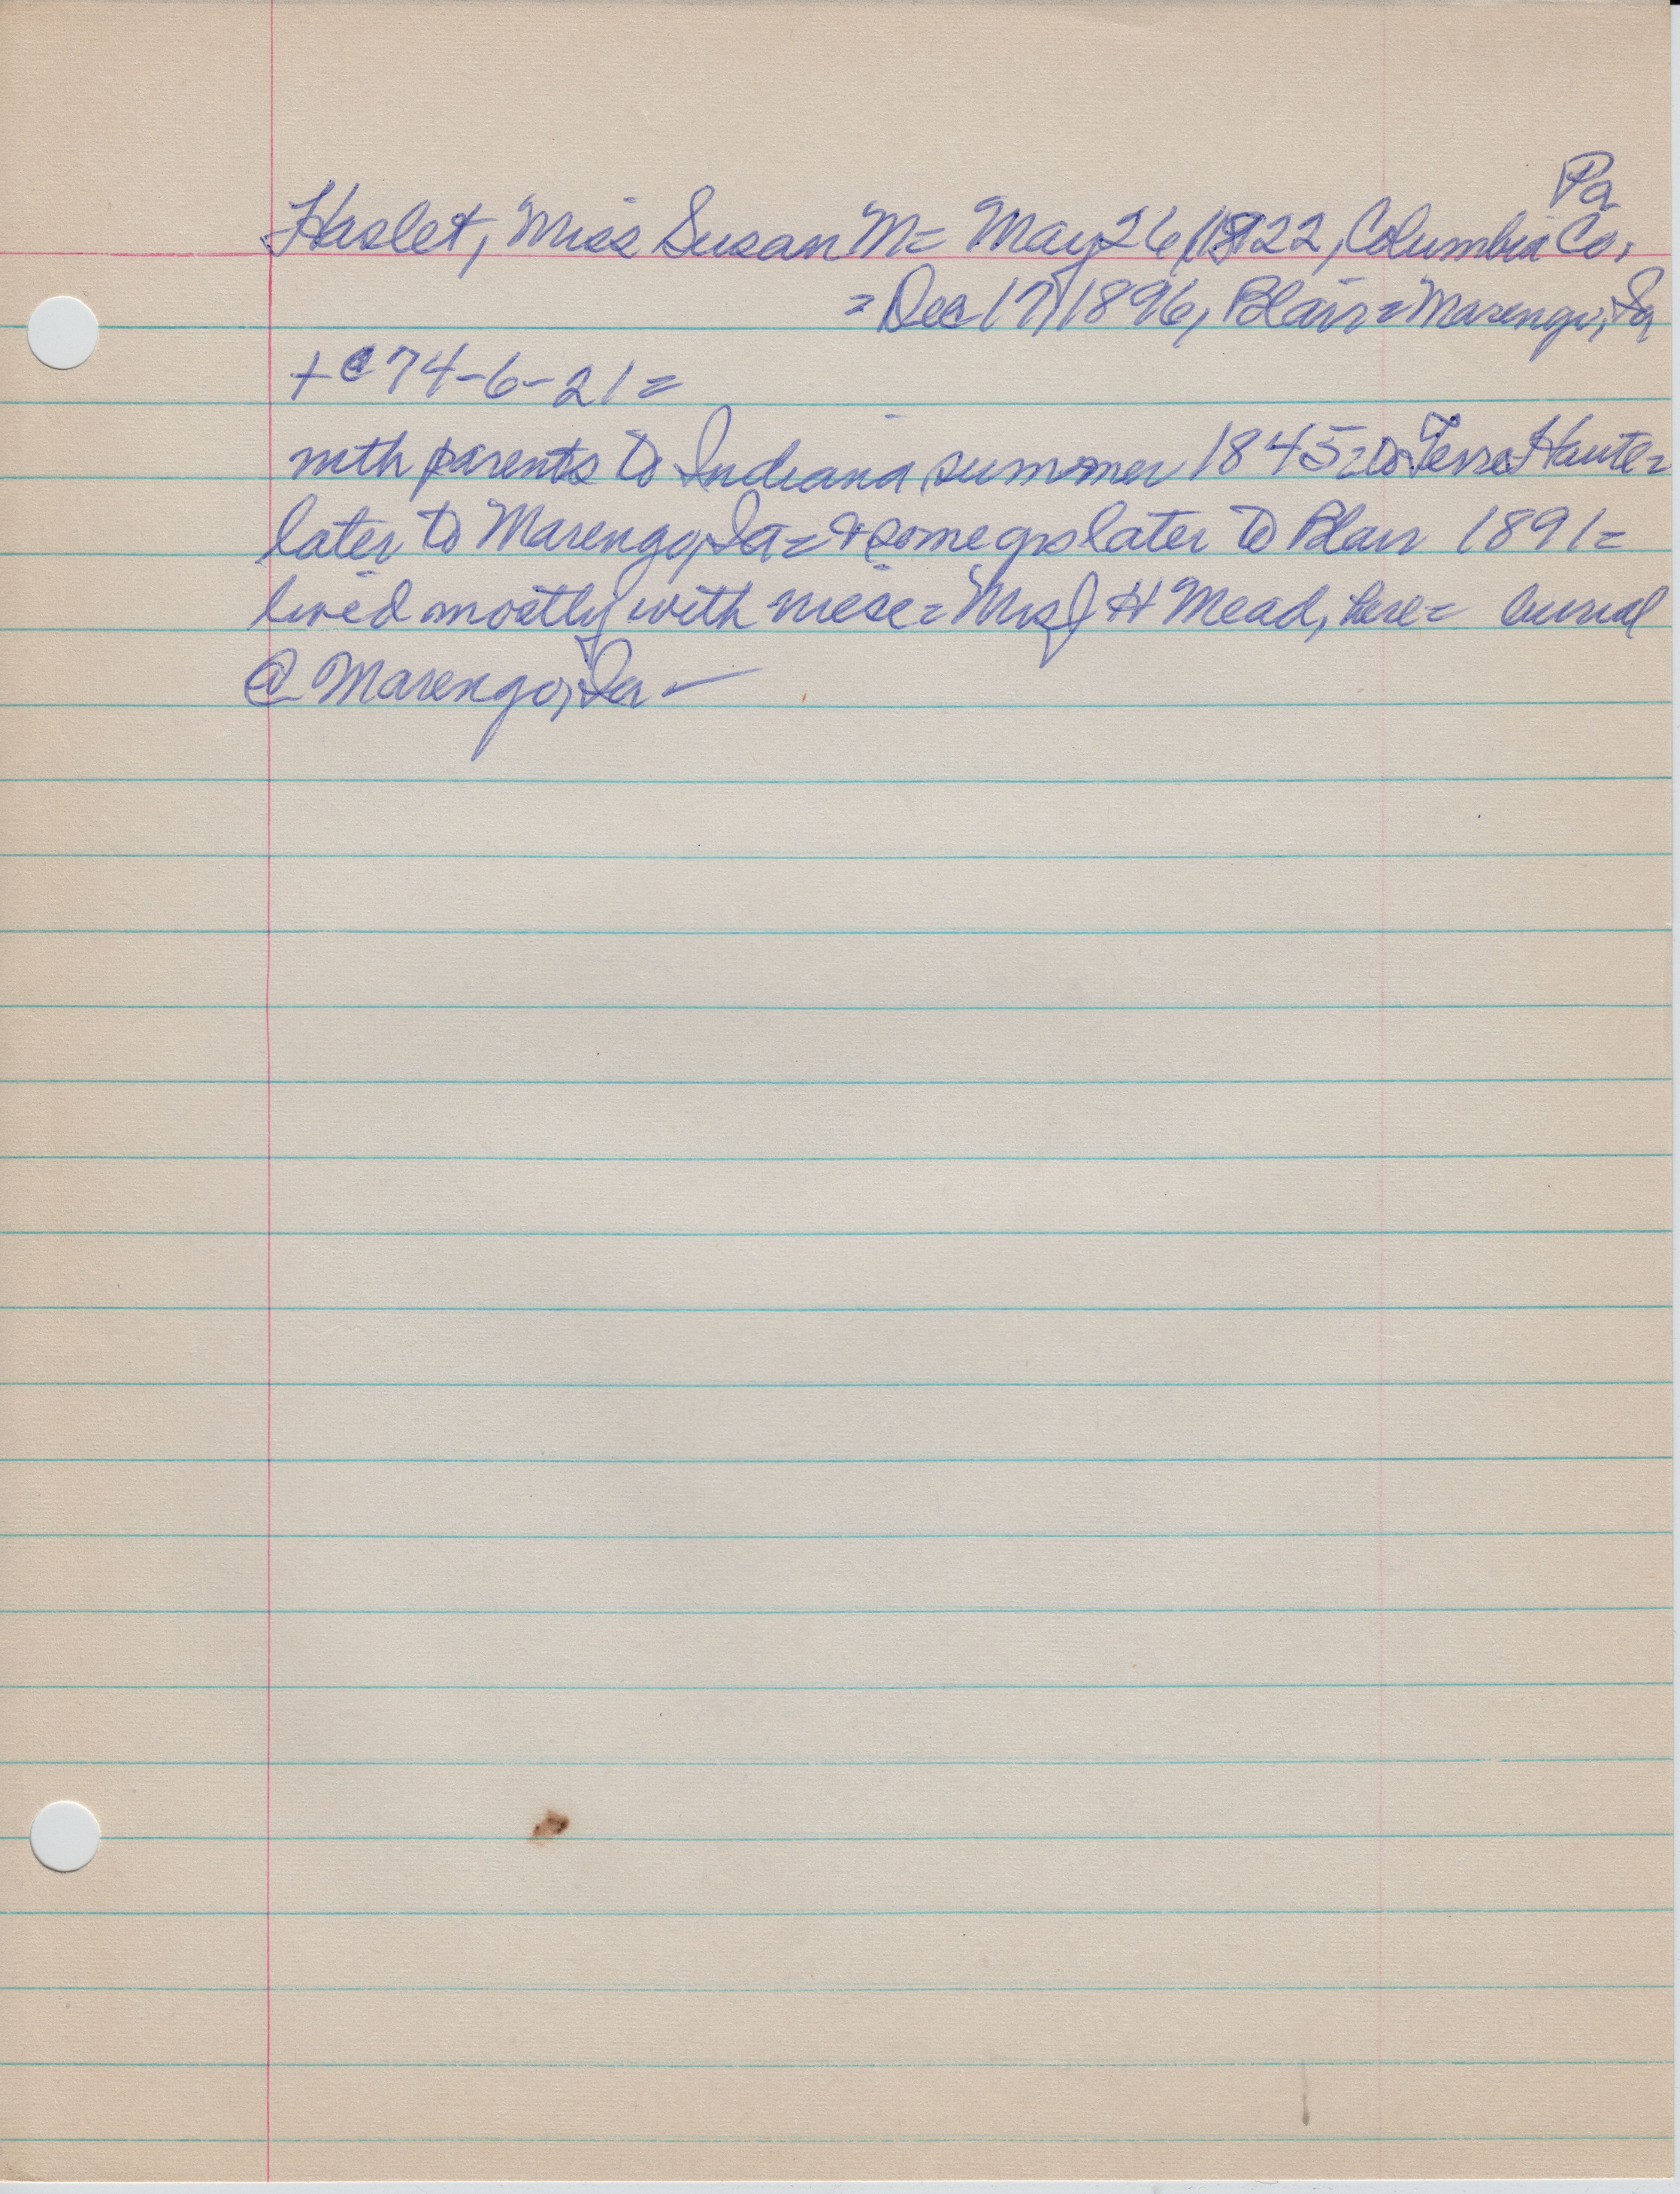 Pa
Haslet, Miss Susan M= May 26, 1822, Columbia Co,
= Dec 17, 1896, Blair = Marengo, Ia
+ @ 74-6-21=
with parents to Indiana summer 1845= to Terre Haute=
later to Marengo, Ia= & some yrs later to Blair 1891=
lived mostly with niese= Mrs J H Mead, here= burial
@ Marengo, Ia -